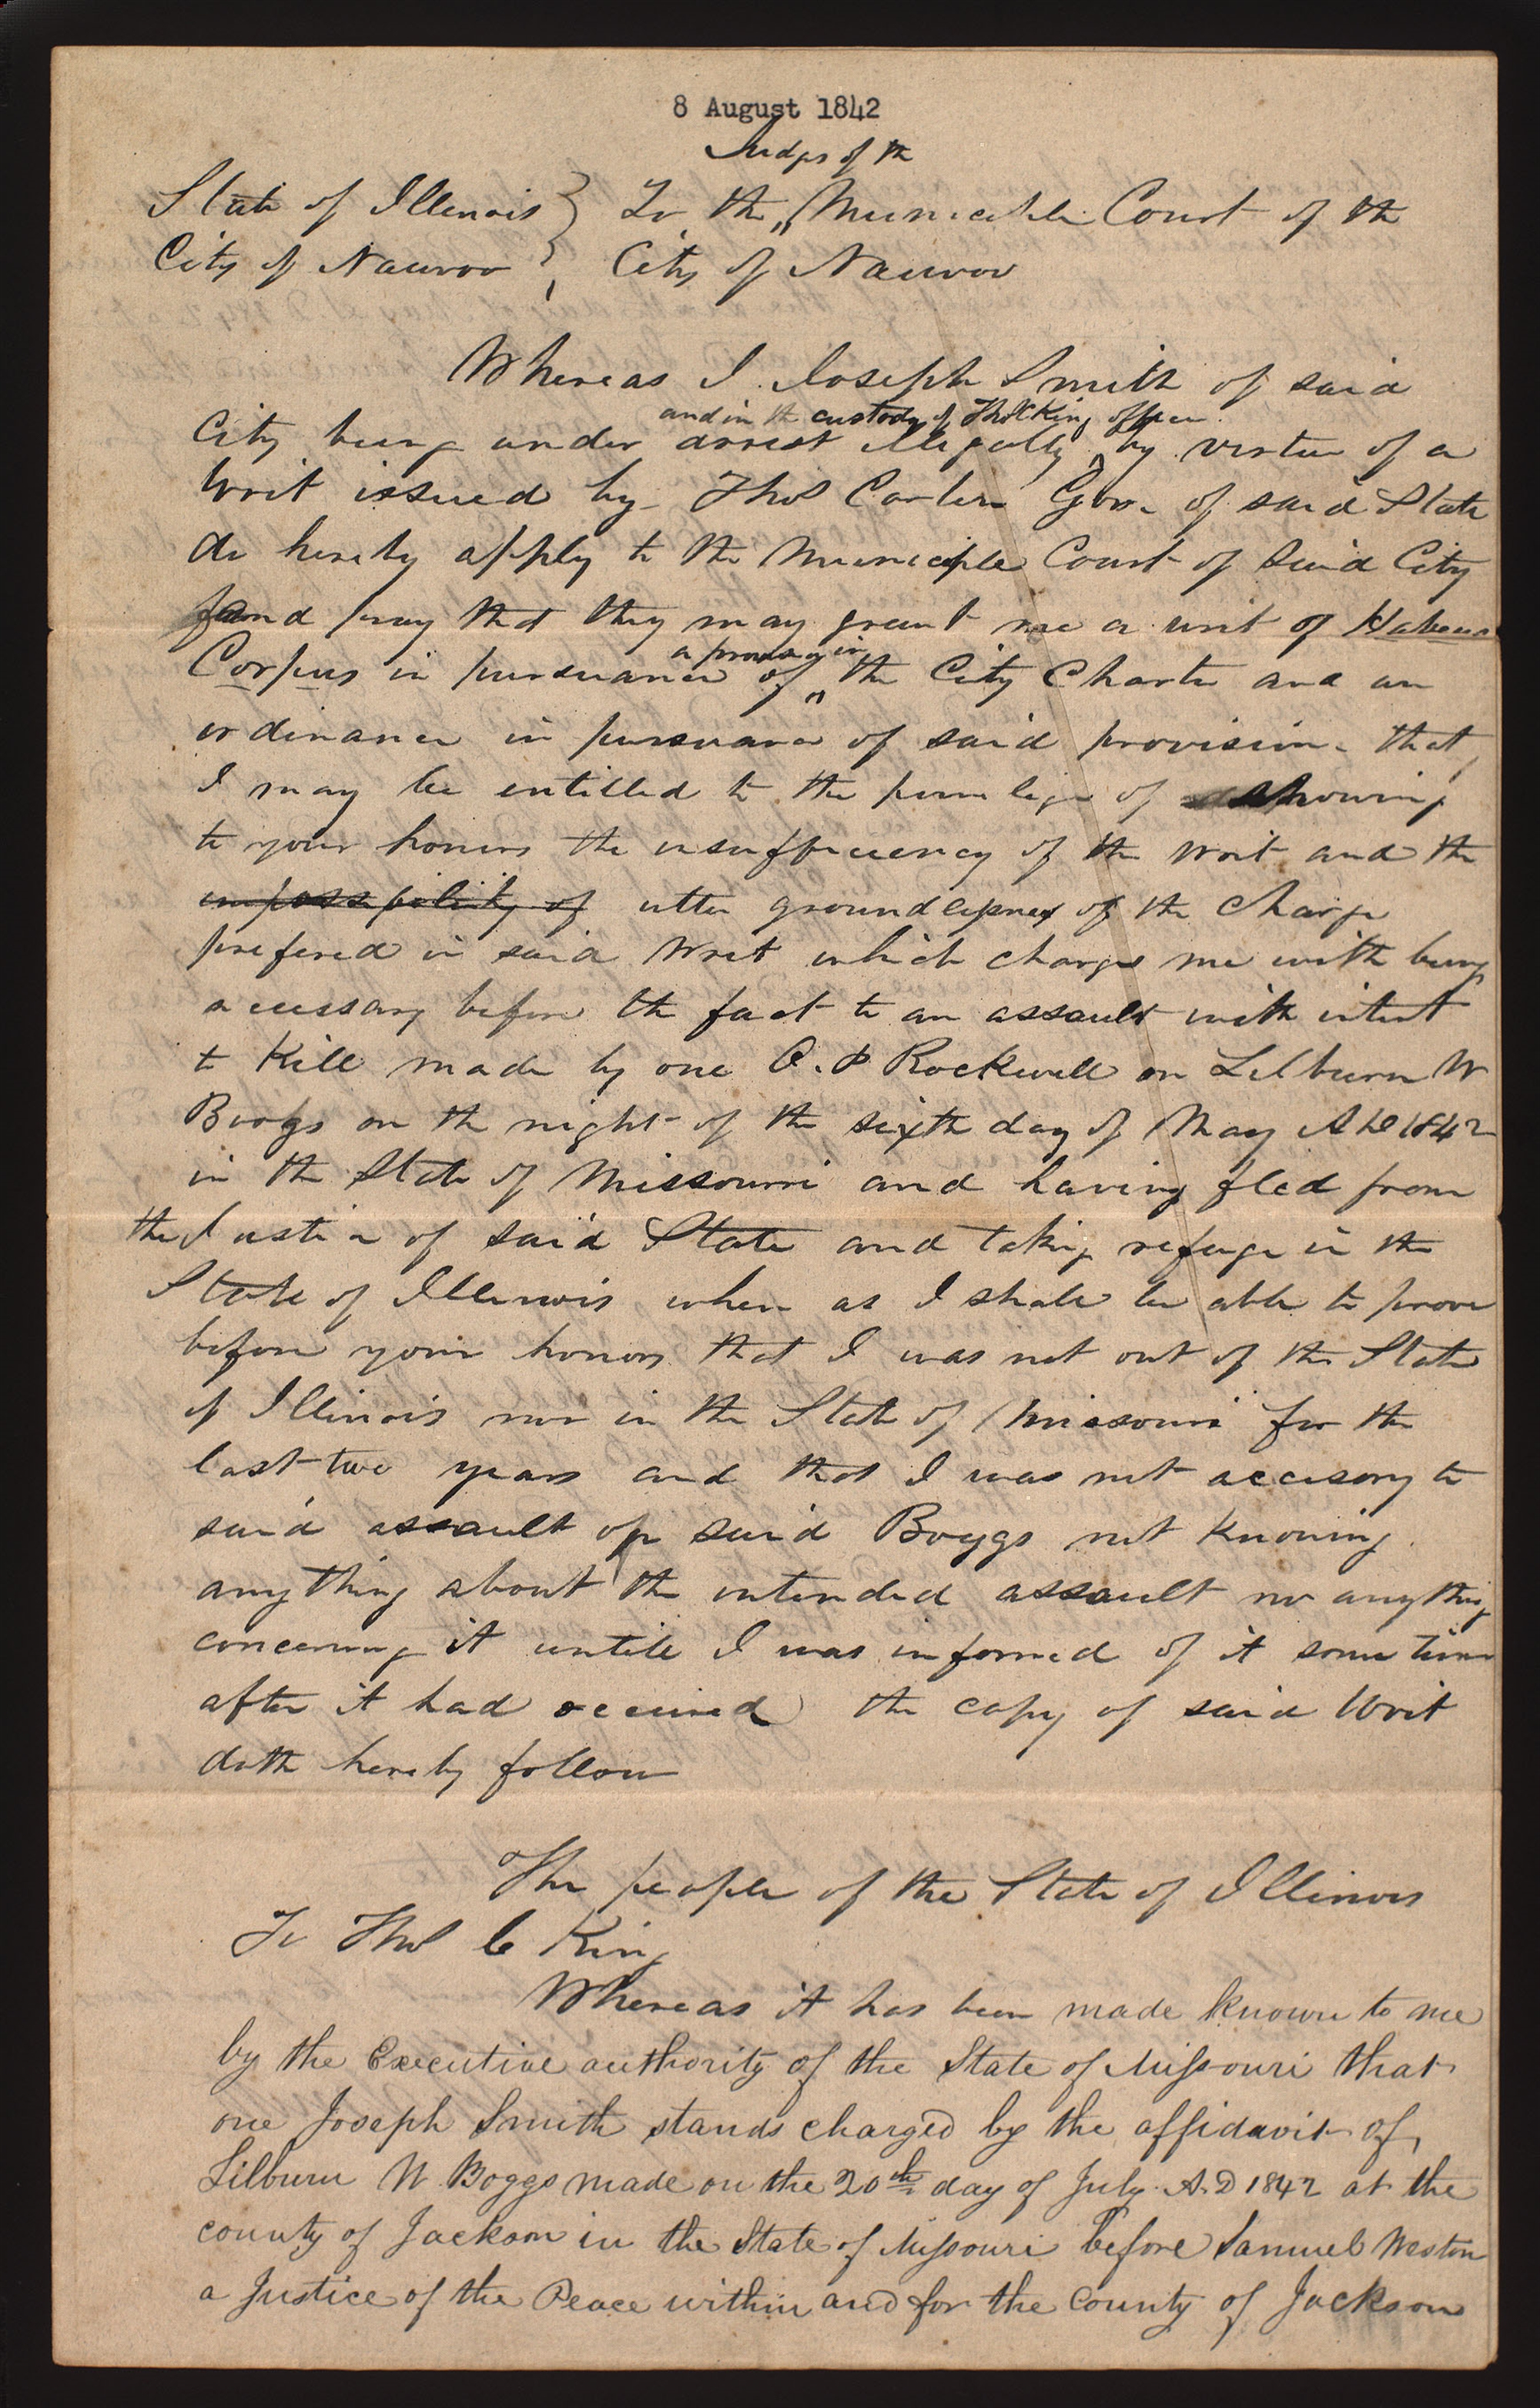 8 August 1842
Judges of th
State of Illenois } To the Municiple Court of the
City of Nauvoo } City of Nauvoo
Whereas I Joseph Smith of said
and in th custody of Thos C King officer
City being under arrest illegally by virtue of a
Writ issued by Thos Carlin Gov. of said State
do hereby apply to the Municiple Court of said City
and pray that they may grant me a writ of Habeas
a provision in
Corpus in pursuance of the City Charter and an
ordinance in pursuance of said provision that
I may be entitled to the privilege of showing
to your honors the insufficiency of the writ and the
impossibility of utter groundlessness of the charge
prefered in said Writ which charges me with being
accessary before the fact to an assault with intent
to Kill made by one O. P Rockwell on Lilburn W
Boggs on the night of the sixth day of May AD 1842
in the State of Missouri and having fled from
the Justice of said State and taking refuge in the
State of Illenois where as I shall be able to prove
before your honors that I was not out of the State
of Illinois nor in the State of Missouri for the
last two years and that I was not accesory to
said assault on said Boggs not knowing
anything about the intended assault nor anything
concerning it untill I was informed of it some time
after it had occured the copy of said Writ
doth hereby follow
The people of the State of Illinois
To Thos C King
Whereas it has been made known to me
by the Executive authority of the State of Missouri that
one Joseph Smith stands charged by the affidavit of
Lilburn W Boggs made on the 20th day of July A.D 1842 at the
county of Jackson in the State of Missouri before Samuel Weston
a Justice of the Peace within and for the County of Jackson